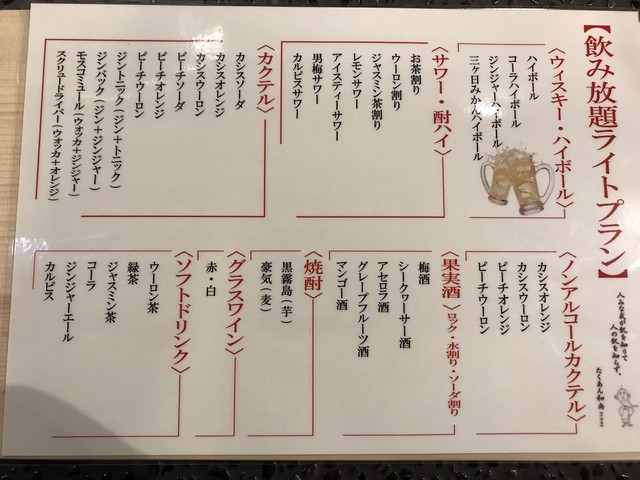 【飲み放題ライトプラン】
〈ウィスキー・ハイボール〉
ハイボール
コーラハイボール
ジンジャーハイボール
三ヶ日みかんハイボール
〈サワー・酎ハイ〉
お茶割り
ウーロン割り
ジャスミン茶割り
レモンサワー
アイスティーサワー
男梅サワー
カルピスサワー
〈カクテル〉
カシスソーダ
カシスオレンジ
カシスウーロン
ピーチソーダ
ピーチオレンジ
ピーチウーロン
ジントニック(ジン+トニック)
ジンバック(ジン+ジンジャー)
モスコミュール(ウォッカ+ジンジャー)
スクリュードライバー(ウォッカ+オレンジ)
〈ノンアルコールカクテル〉
カシスオレンジ
カシスウーロン
ピーチオレンジ
ピーチウーロン
〈果実酒〉〈ロック・水割り・ソーダ割り〉
梅酒
シークワーサー酒
アセロラ酒
グレープフルーツ酒
マンゴー酒
〈焼酎〉
黒霧島(芋)
豪気(麦)
〈グラスワイン〉
赤・白
〈ソフトドリンク〉
ウーロン茶
緑茶
ジャスミン茶
コーラ
ジンジャーエール
カルピス
人みな我が飢を知りて
人の飢を知らず。
たくあん和尚